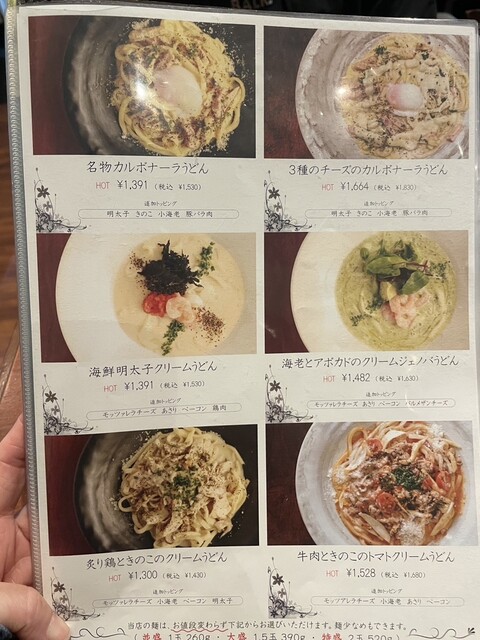 名物カルボナーラうどん
HOT ¥1,391 (税込 ¥1,530)
追加トッピング
明太子 きのこ 小海老 豚バラ肉
3種のチーズのカルボナーラうどん
HOT ¥1,664 (税込 ¥1,830)
追加トッピング
明太子 きのこ 小海老 豚バラ肉
海鮮明太子クリームうどん
HOT ¥1,391 (税込 ¥1,530)
追加トッピング
モッツァレラチーズ あさり ベーコン 鶏肉
海老とアボカドのクリームジェノバうどん
HOT ¥1,482 (税込 ¥1,630)
追加トッピング
モッツァレラチーズ あさり ベーコン パルメザンチーズ
炙り鶏ときのこのクリームうどん
HOT ¥1,300 (税込 ¥1,430)
追加トッピング
モッツアレラチーズ 小海老 ベーコン 明太子
牛肉ときのこのトマトクリームうどん
HOT ¥1,528 (税込 ¥1,680)
追加トッピング
モッツアレラチーズ 小海老 ベーコン
当店の麺は、お値段変わらず下記からお選びいただけます。麺少なめもできます。
(並盛 1玉 260g・大盛 1.5玉 390g・特盛 2玉 520g)